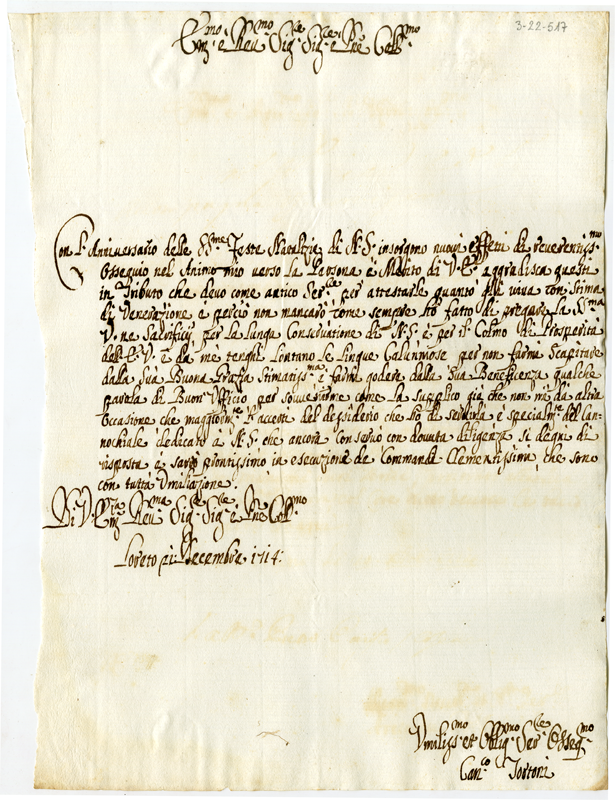 3-22-517
Em.mo e Rev.mo Sig.re Sig.re e P̃ne Coll.mo
Con l'Anniversario delle SS.me Feste Natalizie di N.S. insorgono nuovi effetti di reverentiss.mo
Ossequio nel Animo mio verso la Persona è Merito di V.E. aggradisca questi
in Tributo che devo come antico Ser.re per attestarle quanto gle viva con stima
di Venerazione e perciò non mancarò come sempre hò fatto di pregare la
V. ne Sacrificij per la lunga Conservatione di N.S. è per il Colmo di Prosperità
dell'E.V. è da me tenghi lontano le lingue Caluniose per non farmi Scapitare
dalla Sua Buona Grazia Stimatiss.ma è farmi godere dalla Sua Beneficenza qualche
parola di Buon Uffitio per sovvenirme come la supplico già che non mi dà altra
Occasione che maggiorm.te l'accerti del desiderio che hò di servirla è specialm.te del Can-
nochiale dedicato a N.S. che ancora conservo con dovuta diligenza si degni di
risposta è sarò prontissimo in esecuzione de Commandi Clementissimi, che sono
con tutta Umiliazione.
Di V. Em.za Rev.ma Sig.re Sig.re è P̃ne Coll.mo
Loreto 21 Decembre 1714.
Umiliss.mo et Oblig.mo Ser.re Osseq.mo
Can.co Tortoni